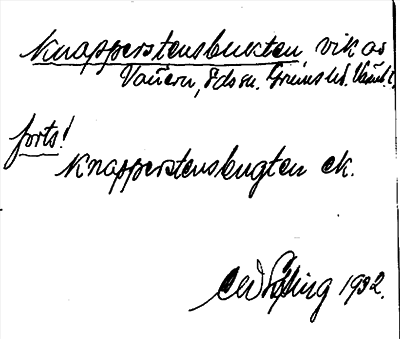 Knapperstensbukten, vik av
Vänern, Eds sn. Grums hd. Värml. l.
forts!
Knapperstensbugten ek.
1932.